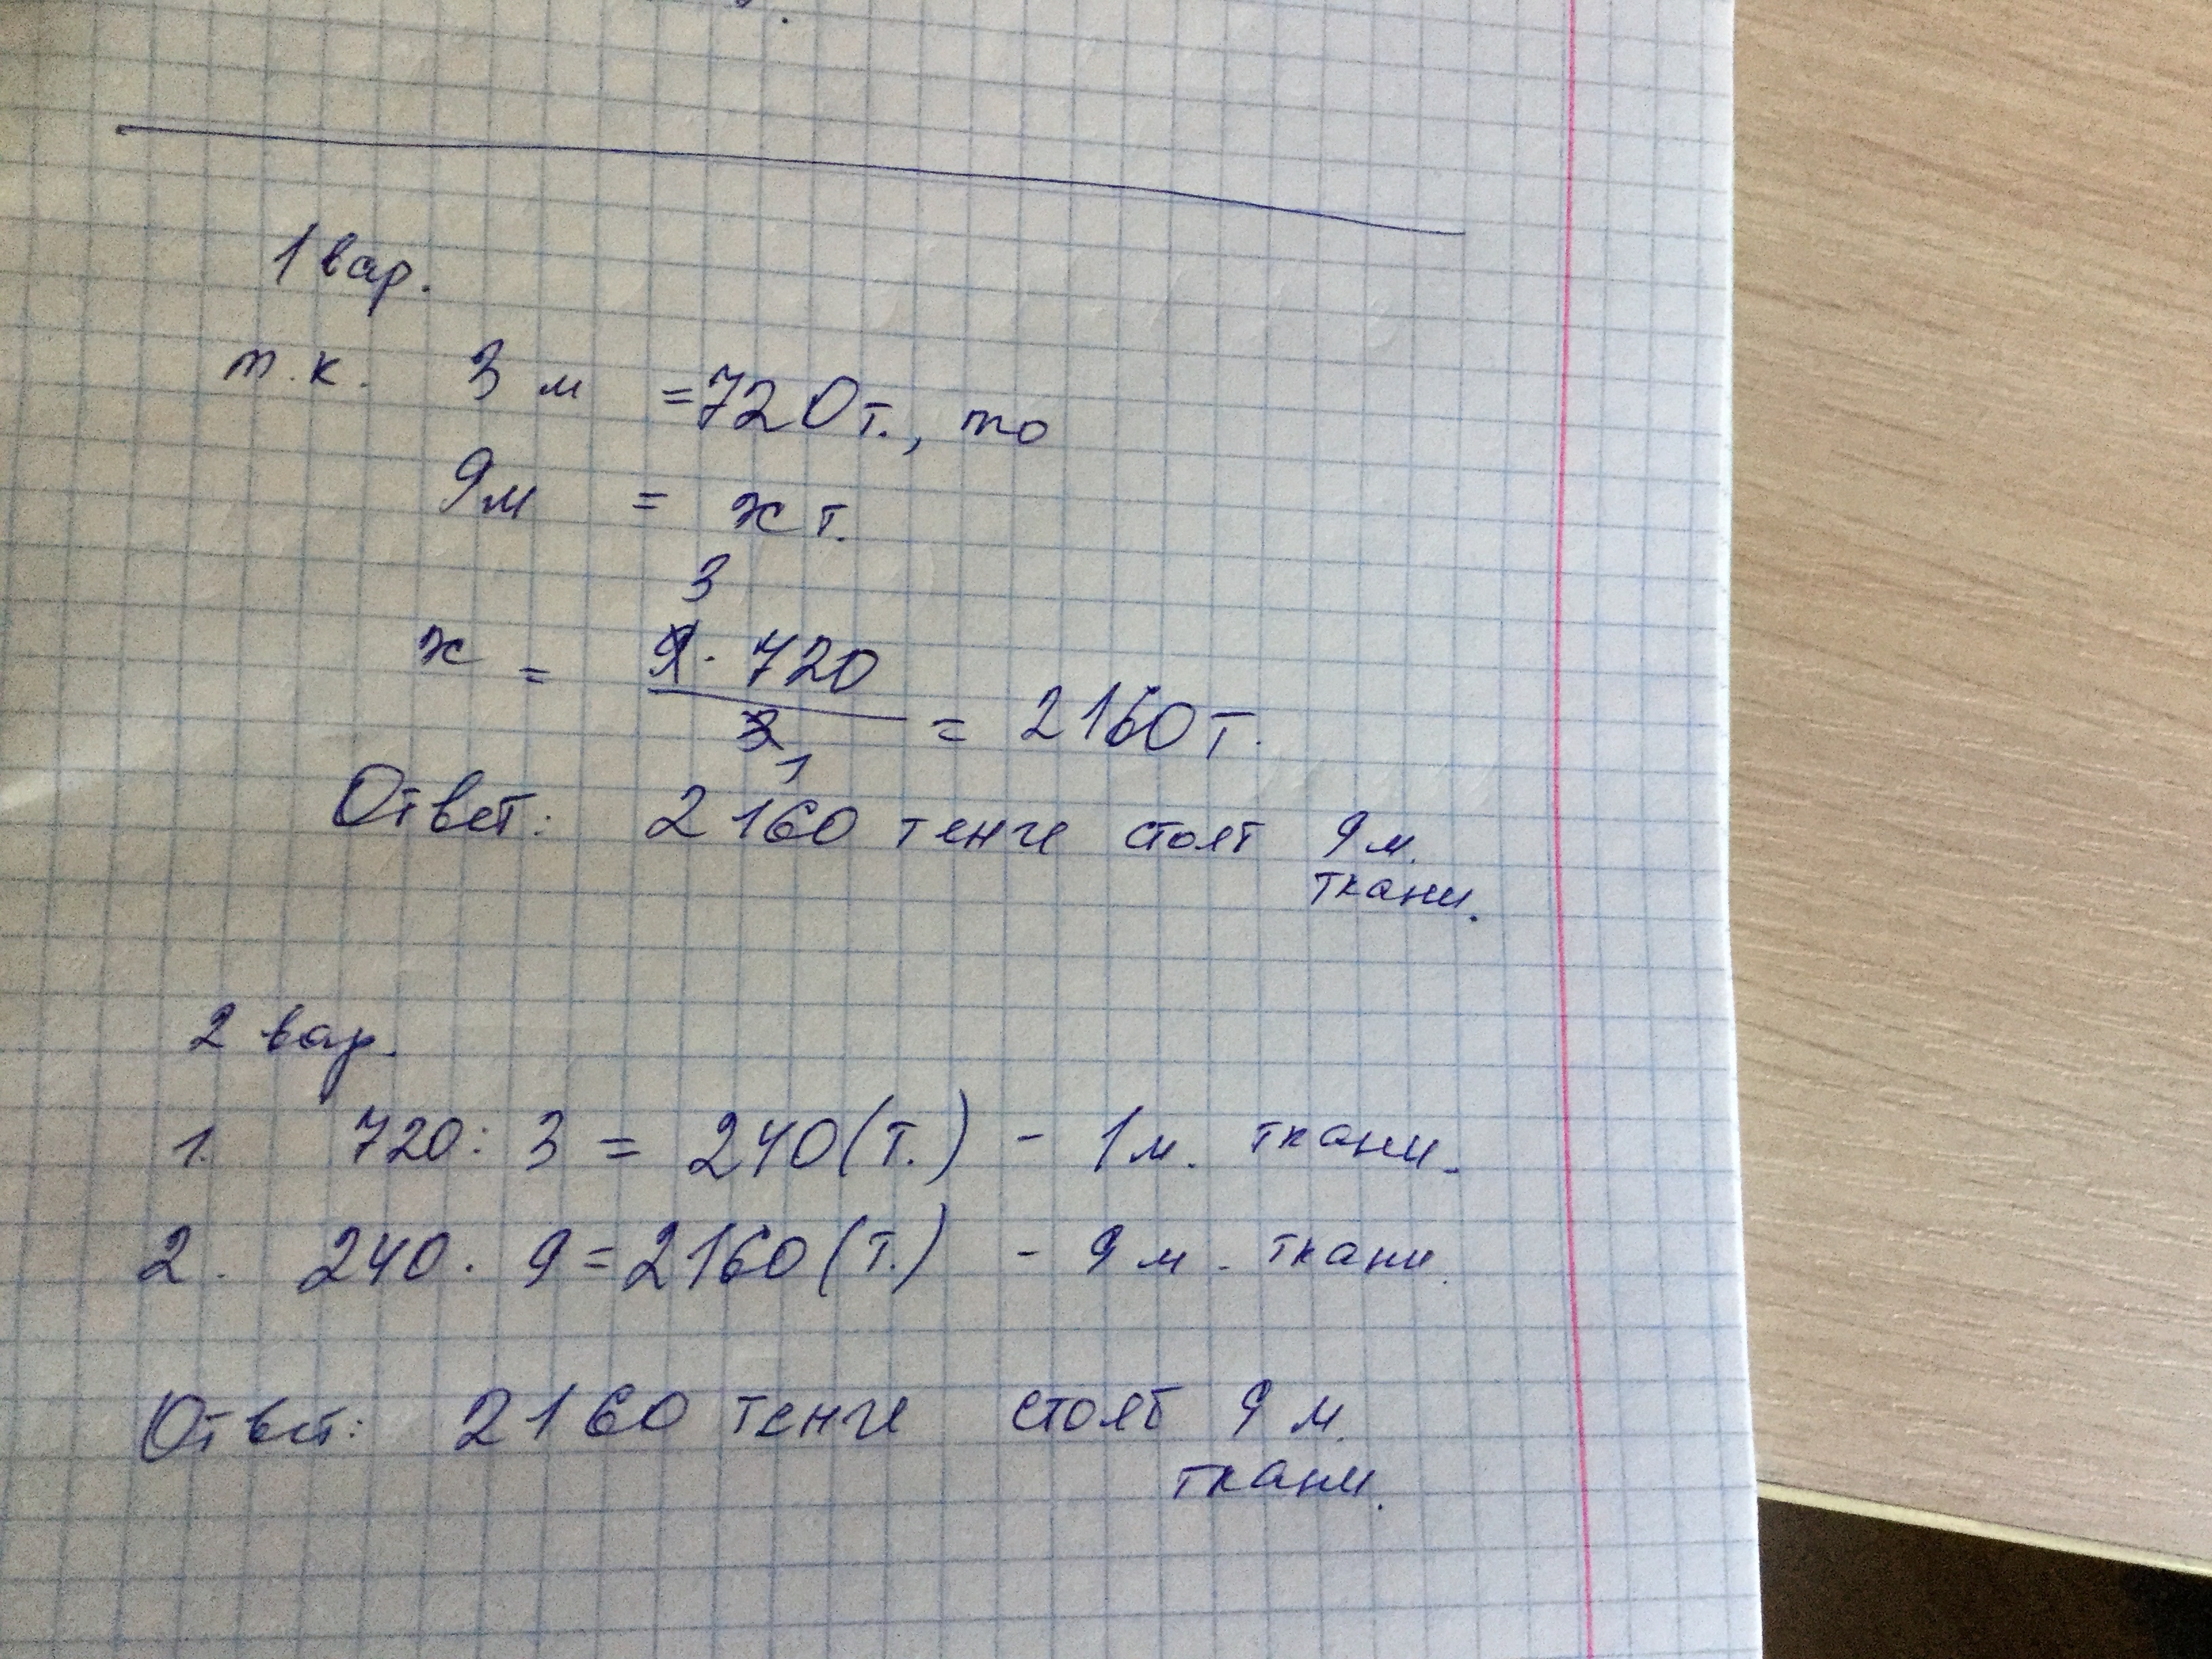 1 вар.
т.к. 3 м = 720 т., то
9 м = x т.
3
x = 9 · 720 = 2160 т.
3 1
Ответ: 2160 тенге стоят 9 м.
ткани.
2 вар.
1. 720 : 3 = 240 (т.) - 1 м. ткани.
2. 240 · 9 = 2160 (т.) - 9 м. ткани.
Ответ: 2160 тенге стоят 9 м.
ткани.